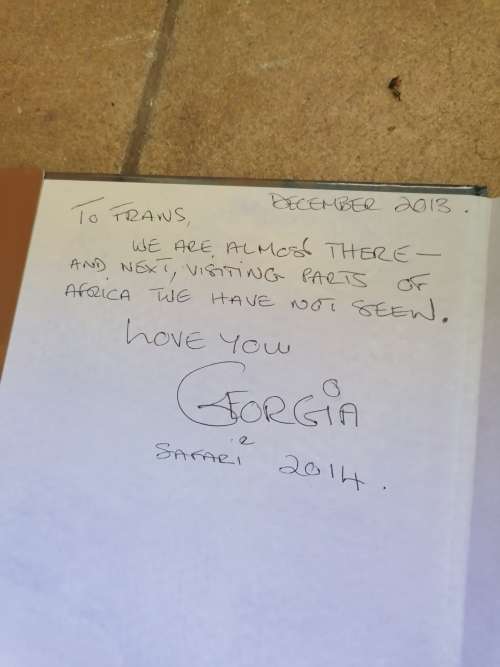 DECEMBER 2013.
TO FRANS,
WE ARE ALMOST THERE —
AND NEXT, VISITING PARTS OF
AFRICA WE HAVE NOT SEEN.
LOVE YOU
GEORGIA
SAFARI 2014.